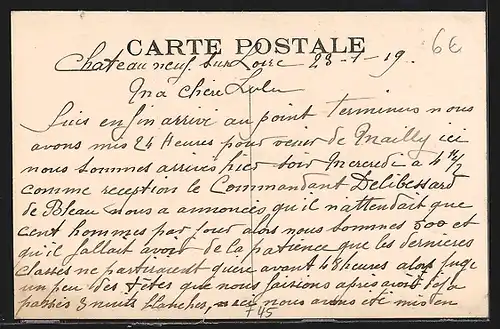 CARTE POSTALE
6E
Chateauneuf sur Loire 23-1-19.
Ma chère Lulu
Suis enfin arrivé au point terminus nous
avons mis 24 Heures pour venir de Mailly ici
nous sommes arrivés hier soir Mercredi à 4 H 1/2
comme réception le Commandant Delibessard
de Bleau nous a annoncés qu'il n'attendait que
cent hommes par jour alors nous sommes 500 et
qu'il fallait avoir de la patience que les dernières
classes ne partiraient guère avant 48 heures alors juge
un peu des têtes que nous faisions après avoir déjà
passés 3 nuits blanches, nous avons été mis en
+45